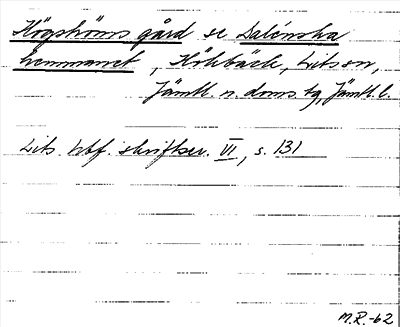 Högströms gård se Dalénska
hemmanet, Kökbäck, Litson,
Jämtl. n. doms tg, Jämtl. l.
Lits hbf. skriftser. VII, s. 131
M.R.-62